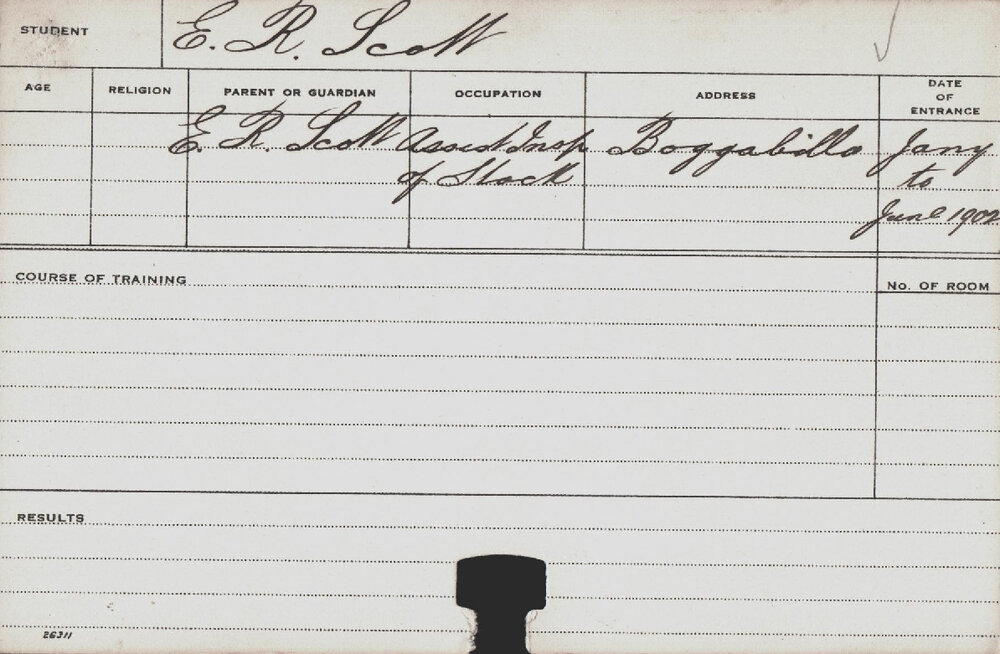 STUDENT E. R. Scott
AGE RELIGION PARENT OR GUARDIAN OCCUPATION ADDRESS DATE OF ENTRANCE
E. R. Scott Assist Insp Boggabilla Jany
of Stock to
June 1902
COURSE OF TRAINING
No. OF ROOM
RESULTS
26311